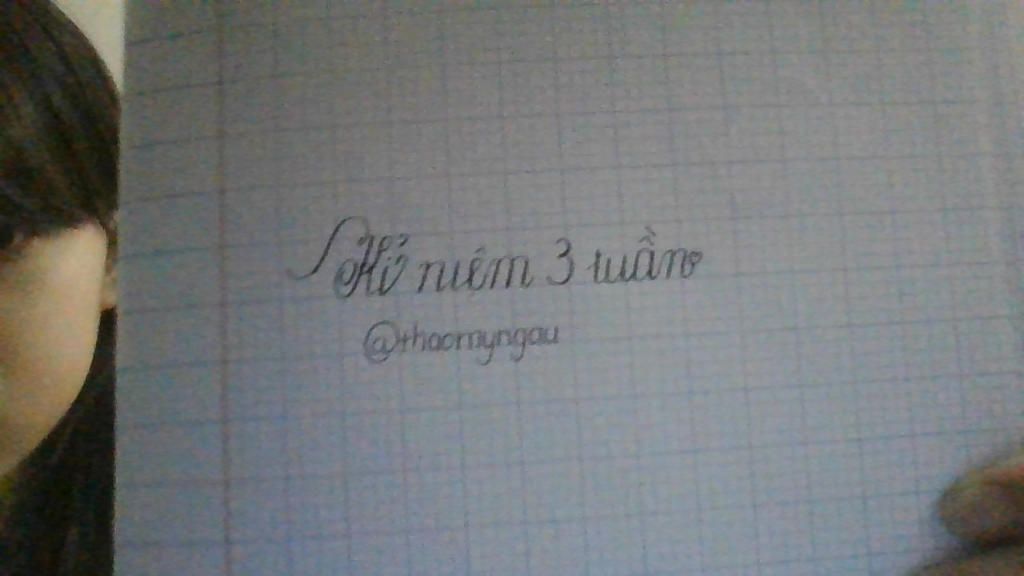 Kỉ niệm 3 tuần
@thaomyngau